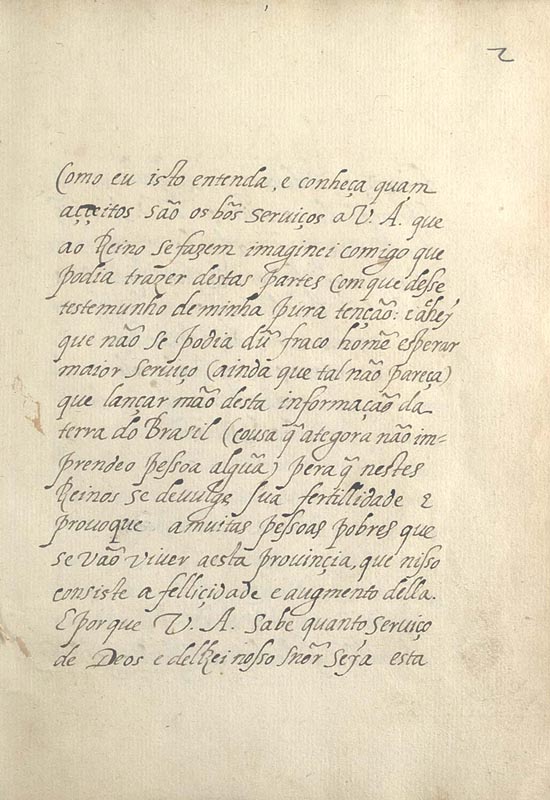 2
Como eu isto entenda, e conheça quam
açeitos são os bõs serviços a V. A. que
ao Reino se fazem imaginei comigo que
podia trazer destas partes com que desse
testemunho de minha pura tenção: e ahey
que não se podia dũ fraco homẽ esperar
maior serviço (ainda que tal não pareça)
que lançar mão desta informação da
terra do Brasil (cousa q̃ ategora não im=
prendeo pessoa algũa) pera q̃ nestes
Reinos se devulge sua fertillidade e
provoque a muitas pessoas pobres que
se vão viver a esta provinçia, que nisso
consiste a felliçidade e augmento della.
E porque V. A. sabe quanto serviço
de Deos e delRei nosso Sñor seja esta